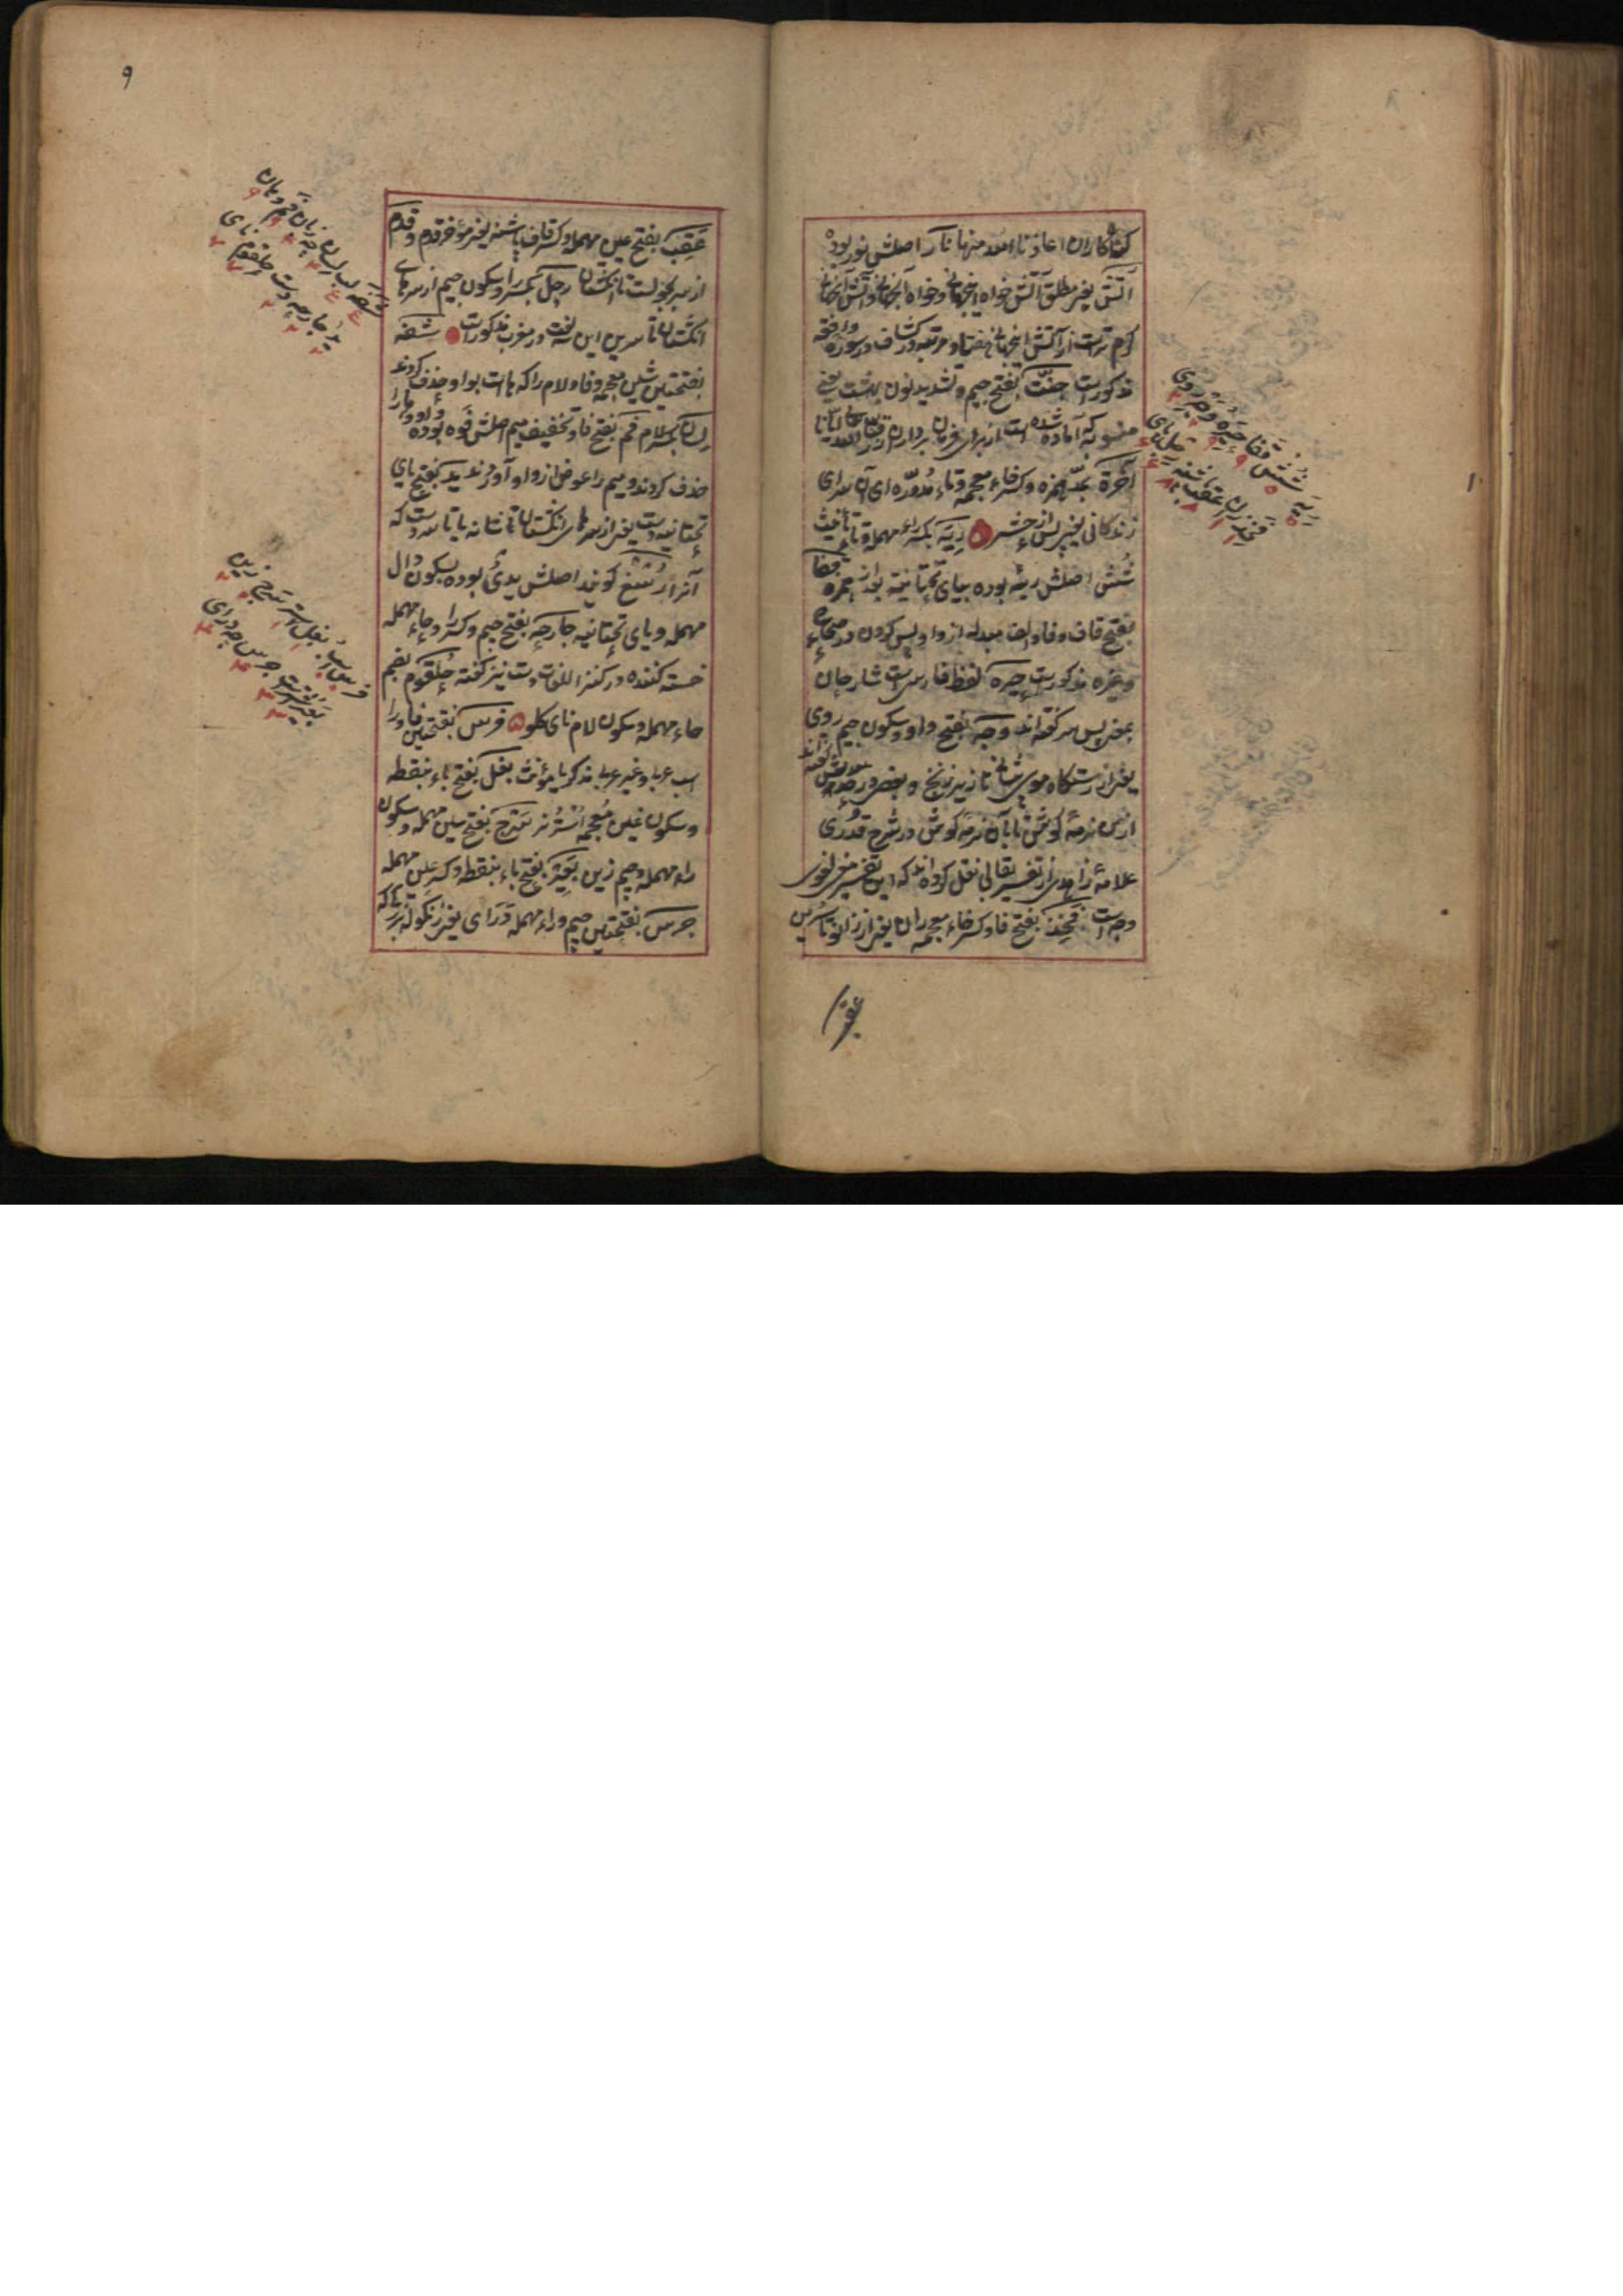 گناه کاران اعاذنا الله منها نار اصلش نور بوده
آتش یعنی مطلق آتش خواه اینجهانی و خواه آنجهانی و آتش آنجهانی
گرم ترست از آتش اینجهانی هفتاد مرتبه در کشاف در سوره واقعه
مذکورست جنّت بفتح جیم و تشدید نون بهشت یعنی
که آماده شده است از برای فرمان برداران
آخرة بمدّ همزه و کسر خاء معجمه و تاء مدوّره ای آن سرای
زندگانی یعنی پس از حشر ریَه بکسر راء مهمله و تا تأنیث
شُش اصلش رئه بوده بیای تحتانیه بعد از همزه قفا
بفتح قاف و فا و الف مبدله از واو پس کردن در صحاح
وغیره مذکورست چیره لفظ فارسی است شارحان
بمعنی پس سر گفته اند وجه بفتح واو و سکون جیم روی
یعنی از رستنگاه موی پیشانی تا زیر زنخ و بعضی در گفته اند
از بن نرمهٔ گوش تا بآن نرمه گوش در شرح قدوری
علامهٔ زاهدی از تفسیر بقالی نقل کرده اند که این تفسیر لغوی
وجه است فَخِذ بفتح فا و کسر خاء معجمه ران یعنی از زانو تا سُرین
عقب
ریَه شُش قفا چیره وجه روی
فخذ ران عقب پاشنه رجل پای
۹
عَقِب بفتح عین مهمله و کسر قاف پاشنه یعنی مؤخر قدم و قدم
از سر تا انگشتان رجل بکسر را و سکون جیم از سرهای
انگشتان تا سرین این سه لغت در مغرب مذکورست شَفَه
بفتحتین شین معجمه و فا و لام را که ها است بواو حذف کردند
لسان بکسر لام فم بفتح فا و تخفیف میم اصلش فوه بوده واو و ها را
حذف کردند و میم را عوض از واو آوردند ید بفتح یای
تحتانیه دست یعنی از سرهای انگشتان تا شانه یا تا بندست که
آنرا رُسغ گویند اصلش یدیٌ بوده بسکون دال
مهمله و یای تحتانیه جارحَه بفتح جیم و کسر را و حاء مهمله
خسته کننده در کنز اللغات دست نیز گفته حُلقوم بضم
حاء مهمله و سکون لام نای گلو فَرَس بفتحتین فا و را
اسب عربی و غیر عربی مذکر یا مؤنث بغل بفتح باء بنقطه
و سکون غین معجمه اَسْتَر نر سَرج بفتح سین مهمله و سکون
راء مهمله و جیم زین بَعِیر بفتح باء بنقطه و کسر عین مهمله
جرس بفتحتین جیم و راء مهمله دَرای یعنی زنگوله
شفه لب لسان چه زبان فم دهان
ید جارحه دست حلقوم نای
فرس اسب بغل استر سرج زین
بعیر اشتر جرس چه درای